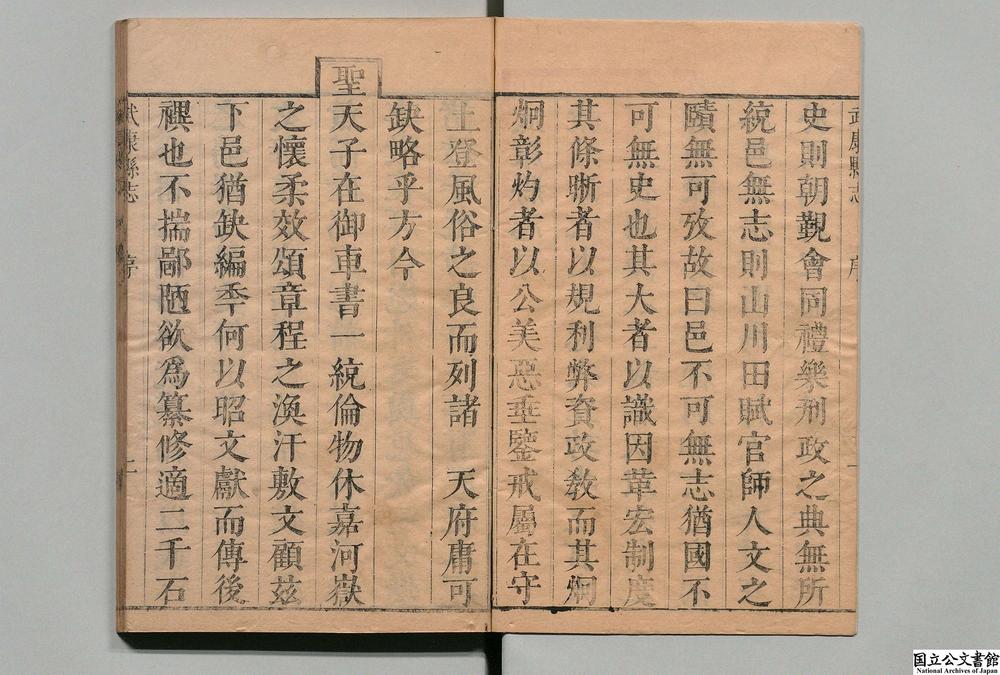 武康縣志 序
史則朝覲會同禮樂刑政之典無所
統邑無志則山川田賦官師人文之
賾無可攷故曰邑不可無志猶國不
可無史也其大者以識因革宏制度
其條晰者以規利弊資政敎而其炯
炯彰灼者以公美惡垂鑒戒屬在守
土登風俗之良而列諸 天府庸可
缺略乎方今
聖天子在御車書一統倫物休嘉河嶽
之懷柔效頌章程之渙汗敷文顧茲
下邑猶缺編年何以昭文獻而傳後
禩也不揣鄙陋欲爲纂修適二千石
武康縣志 序 二
国立公文書館
National Archives of Japan